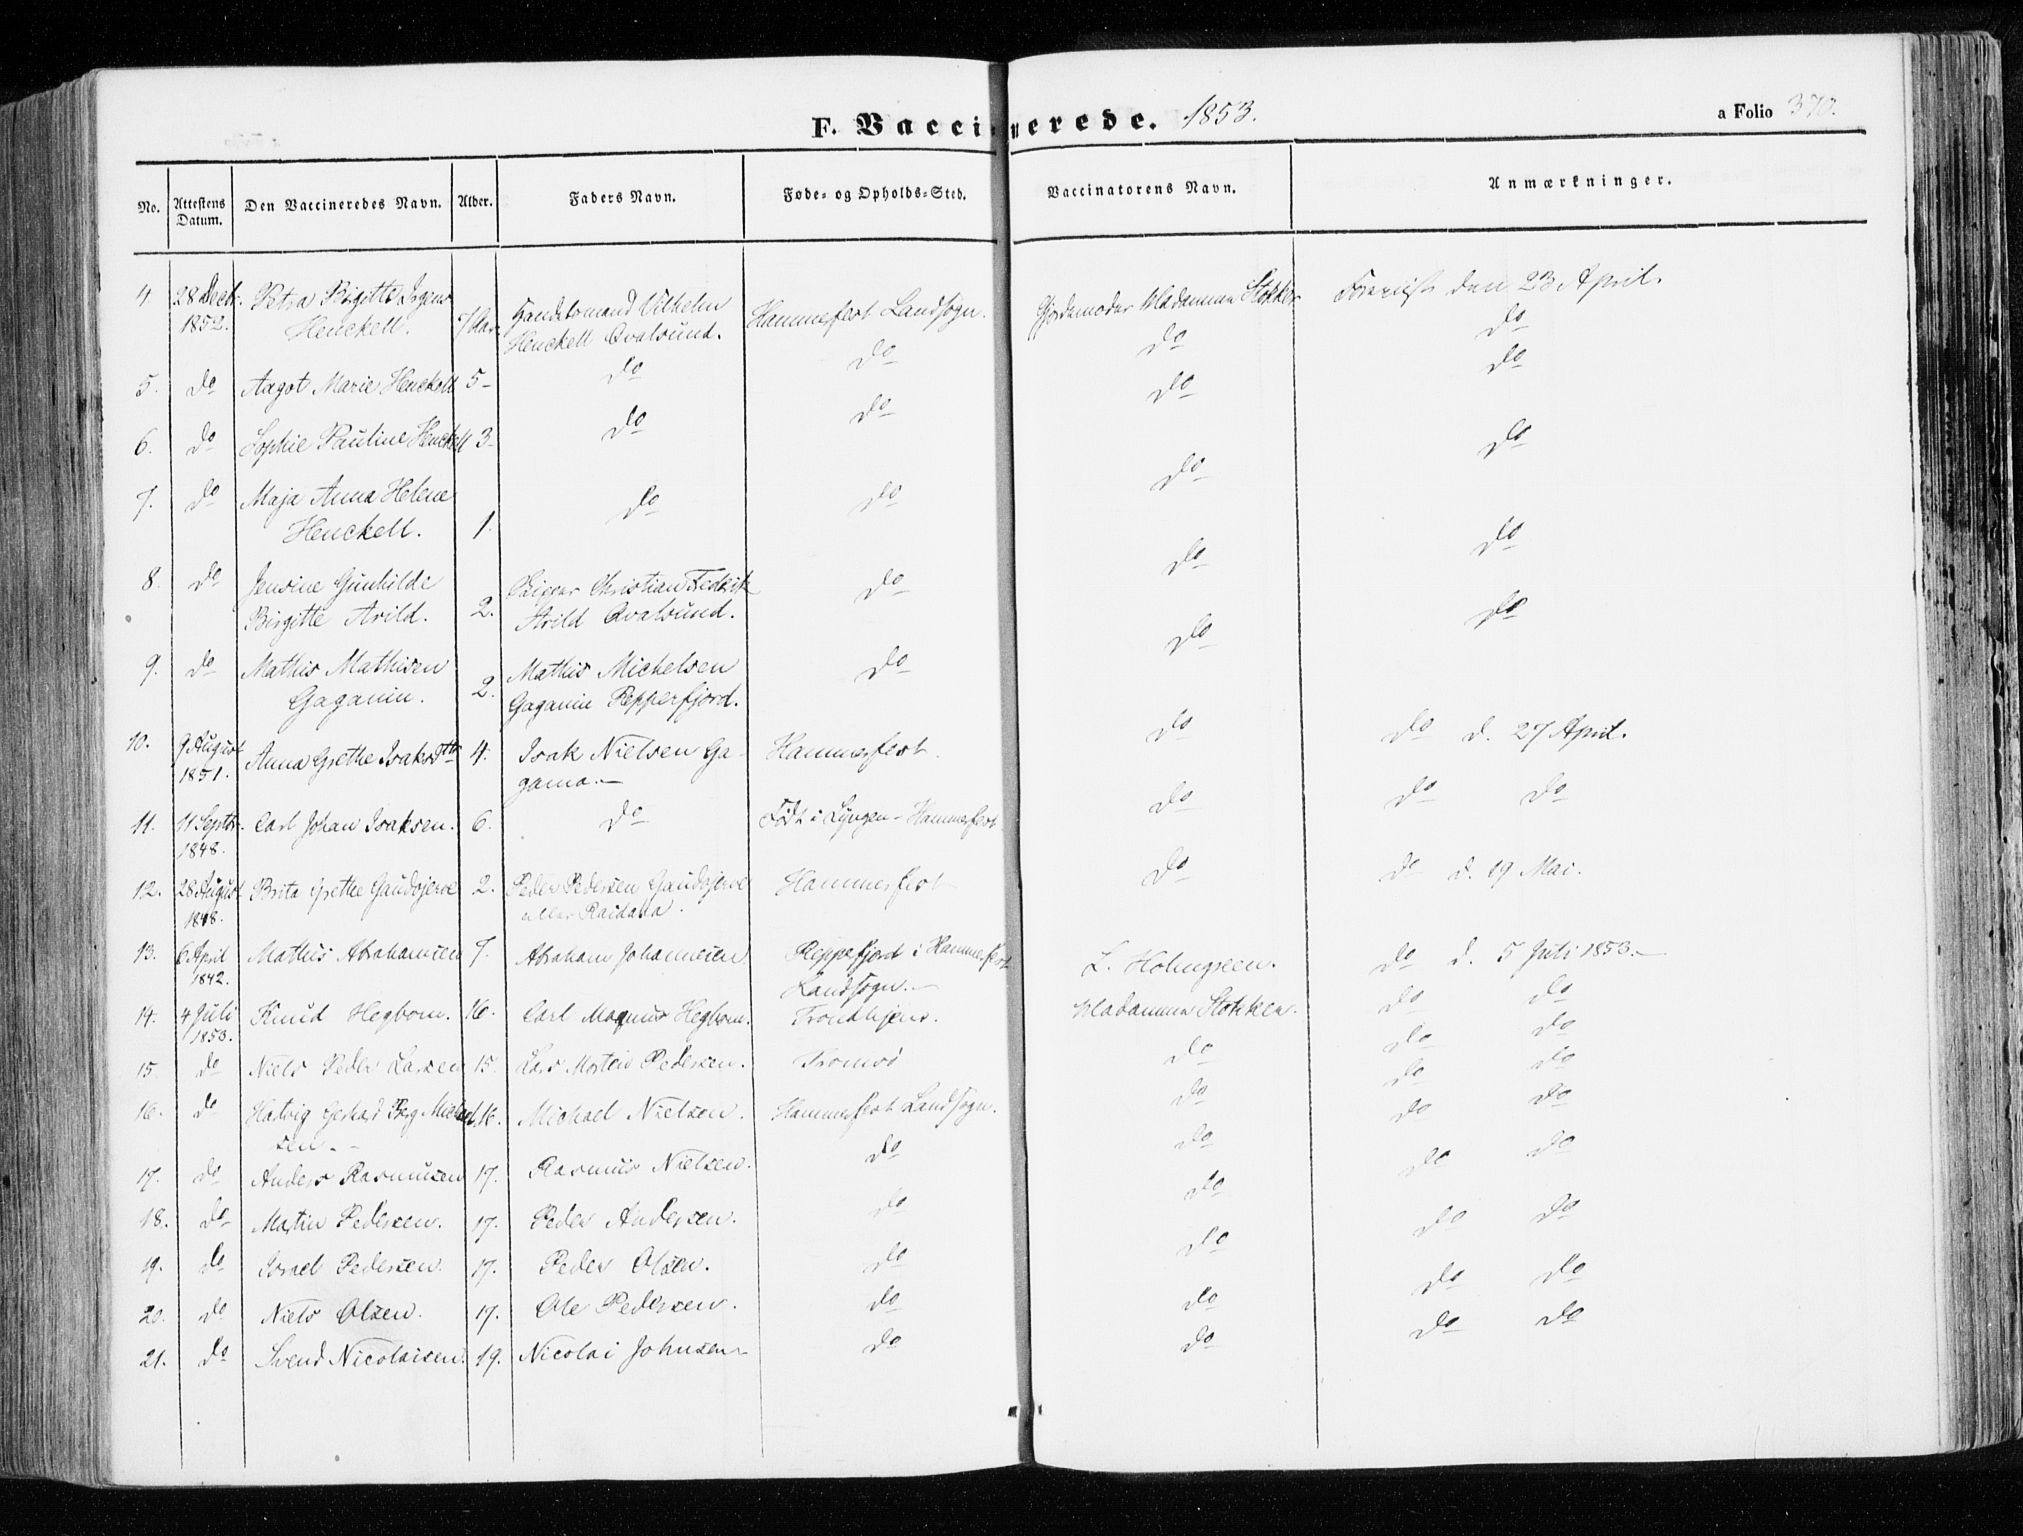 F. Vaccinerede. 1853.
a Folio 370.
No. Attestens Datum. Den Vaccineredes Navn. Alder. Faders Navn. Føde- og Opholds-Sted. Vaccinatorens Navn. Anmærkninger.
4 28 Decbr. Petra Birgitte Irgens Handelsmand Vilhelm Hammerfest Landsogn. Gjordemoder Madamme Stokken Foreviist den 23 April.
1852. Henckell. 7 Aar. Henckell Qvalsund. do
5. do Aagot Marie Henckell 5- do do do do
6. do Sophie Pauline Henckell 3- do do do do
7. do Maja Anna Helene do do do do
Henckell. 1.
8. do Jensine Gunhilde Christian Fedrik do do do
Birgitte Arild. 2. Arild Qvalsund.
9. do Mathis Mathisen Mathis Michelsen do do do
Gaganin. 2. Gaganin Repperfjord.
10. 9 August Anna Grethe Isaksdtr 4. Isak Nielsen Ga- Hammerfest. do do d. 27 April.
1851. gama.-
11. 11 Septbr. Carl Johan Isaksen. 6. do Født i Lyngen - Hammerfest do do do
1848.
12. 28 August Brita Grethe Gaudojerve 2. Peder Pedersen Gaudojerve Hammerfest do do d. 19 Mai.
1848. eller Raidana.
13. 6 April Mathis Abrahamsen 7. Abraham Johannesen Reppefjord i Hammerfest L. Holmgreen. do d. 5 Juli 1853.-
1842. Landsogn.-
14. 4 Juli Knud Hegbom. 16. Carl Magnus Hegbom. Trondhjem. Madamme Stokken. do do
1853.
15. do Niels Peder Larsen 15. Lars Morten Pedersen. Tromsø do do do
16. do Hatvig Gerhard Berg Michael 16. Michael Nielsen. Hammerfest Landsogn. do do do
sen.-
17. do Anders Rasmusen 17. Rasmus Nielsen. do do do do
18. do Martin Pedersen. 17. Peder Andersen. do do do do
19. do Israel Pedersen. 17. Peder Olsen. do do do do
20. do Niels Olsen. 17. Ole Pedersen. do do do do
21. do Svend Nicolaisen. 19. Nicolai Johnsen do do do do